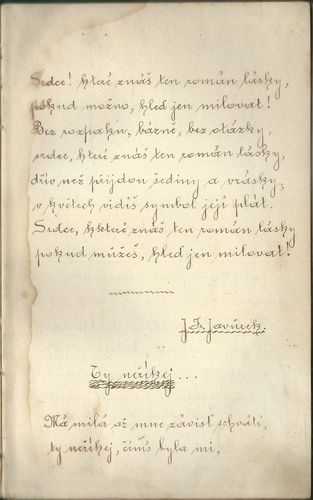 Srdce! které znáš ten román lásky,
pokud možno, hleď jen milovat!
Bez rozpaku, bázně, bez otázky,
srdce, které znáš ten román lásky,
dřív než přijdou šediny a vrásky,
v květech vidíš symbol její plát.
Srdce, kkteré znáš ten román lásky
pokud můžeš, hleď jen milovat!
J. Fr. Javůrek.
Ty neříkej...
Má milá až mne závist schvátí,
ty neříkej, čím's byla mi,